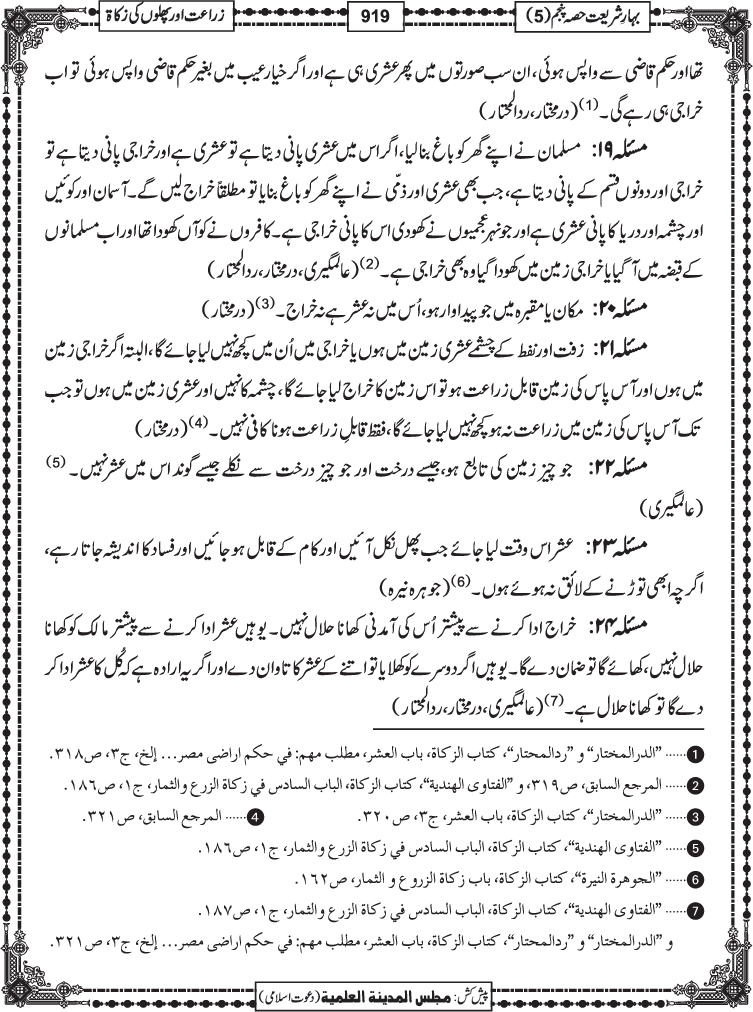 بہارِ شریعت حصہ پنجم (5)
919
زراعت اور پھلوں کی زکاۃ
تھا اور حکم قاضی سے واپس ہوئی، ان سب صورتوں میں پھر عشری ہی ہے اور اگر خیار عیب میں بغیر حکم قاضی واپس ہوئی تو اب
خراجی ہی رہے گی۔ (1) (درمختار، ردالمحتار)
مسئلہ ۱۹: مسلمان نے اپنے گھر کو باغ بنالیا، اگر اس میں عشری پانی دیتا ہے تو عشری ہے اور خراجی پانی دیتا ہے تو
خراجی اور دونوں قسم کے پانی دیتا ہے، جب بھی عشری اور ذمّی نے اپنے گھر کو باغ بنایا تو مطلقاً خراج لیں گے۔ آسمان اور کوئیں
اور چشمہ اور دریا کا پانی عشری ہے اور جو نہر عجمیوں نے کھودی اس کا پانی خراجی ہے۔ کافروں نے کوآں کھودا تھا اور اب مسلمانوں
کے قبضہ میں آگیا یا خراجی زمین میں کھودا گیا وہ بھی خراجی ہے۔ (2) (عالمگیری، درمختار، ردالمحتار)
مسئلہ ۲۰: مکان یا مقبرہ میں جو پیداوار ہو، اُس میں نہ عشر ہے نہ خراج۔ (3) (درمختار)
مسئلہ ۲۱: زفت اور نفط کے چشمے عشری زمین میں ہوں یا خراجی میں اُن میں کچھ نہیں لیا جائے گا، البتہ اگر خراجی زمین
میں ہوں اور آس پاس کی زمین قابل زراعت ہو تو اس زمین کا خراج لیا جائے گا، چشمہ کا نہیں اور عشری زمین میں ہوں تو جب
تک آس پاس کی زمین میں زراعت نہ ہو کچھ نہیں لیا جائے گا، فقط قابلِ زراعت ہونا کافی نہیں۔ (4) (درمختار)
مسئلہ ۲۲: جو چیز زمین کی تابع ہو، جیسے درخت اور جو چیز درخت سے نکلے جیسے گوند اس میں عشر نہیں۔ (5)
(عالمگیری)
مسئلہ ۲۳: عشر اس وقت لیا جائے جب پھل نکل آئیں اور کام کے قابل ہو جائیں اور فساد کا اندیشہ جاتا رہے،
اگرچہ ابھی توڑنے کے لائق نہ ہوئے ہوں۔ (6) (جوہرہ نیرہ)
مسئلہ ۲۴: خراج ادا کرنے سے پیشتر اُس کی آمدنی کھانا حلال نہیں۔ یوہیں عشر ادا کرنے سے پیشتر مالک کو کھانا
حلال نہیں، کھائے گا تو ضمان دے گا۔ یوہیں اگر دوسرے کو کھلایا تو اتنے کے عشر کا تاوان دے اور اگر یہ ارادہ ہے کہ کُل کا عشر ادا کر
دے گا تو کھانا حلال ہے۔ (7) (عالمگیری، درمختار، ردالمحتار)
1 ...... "الدرالمختار" و "ردالمحتار"، کتاب الزکاة، باب العشر، مطلب مهم: في حکم اراضی مصر... إلخ، ج۳، ص۳۱۸.
2 ...... المرجع السابق، ص۳۱۹، و "الفتاوی الهندية"، کتاب الزکاة، الباب السادس في زکاة الزرع والثمار، ج۱، ص۱۸۶.
3 ...... "الدرالمختار"، کتاب الزکاة، باب العشر، ج۳، ص۳۲۰. 4 ...... المرجع السابق، ص۳۲۱.
5 ...... "الفتاوی الهندية"، کتاب الزکاة، الباب السادس في زکاة الزرع والثمار، ج۱، ص۱۸۶.
6 ...... "الجوهرة النيرة"، کتاب الزکاة، باب زکاة الزروع و الثمار، ص۱۶۲.
7 ...... "الفتاوی الهندية"، کتاب الزکاة، الباب السادس في زکاة الزرع والثمار، ج۱، ص۱۸۷.
و "الدرالمختار" و "ردالمحتار"، کتاب الزکاة، باب العشر، مطلب مهم: في حکم اراضی مصر... إلخ، ج۳، ص۳۲۱.
پیش کش: مجلس المدينة العلمية (دعوت اسلامی)